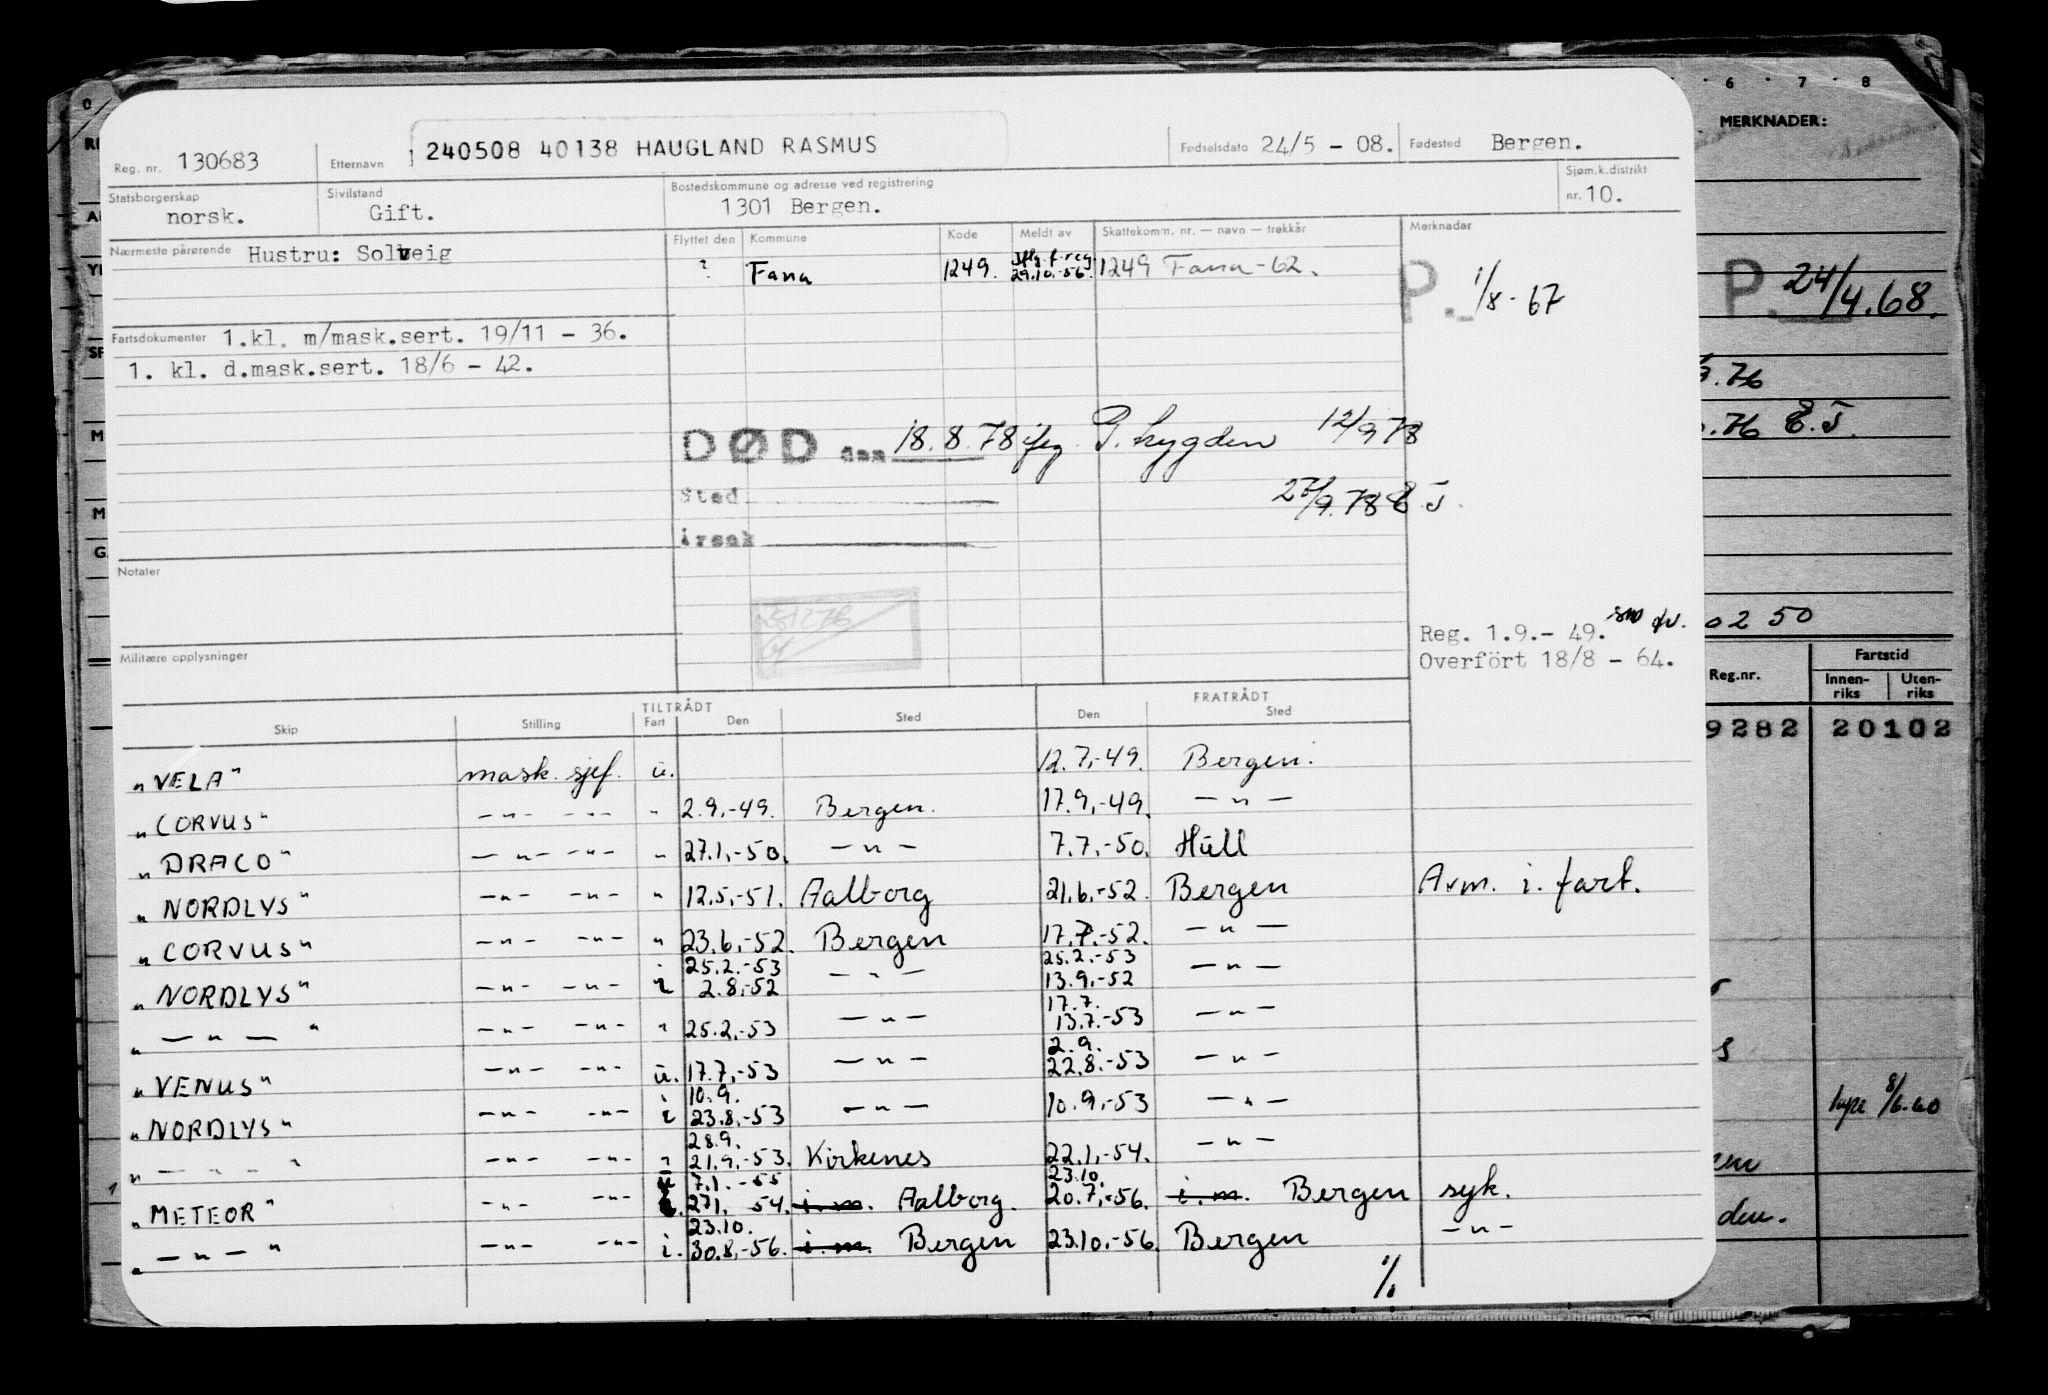 Reg. nr. 130683 Etternavn 240508 40138 HAUGLAND RASMUS Fødselsdato 24/5 - 08. Fødested Bergen.
Statsborgerskap norsk. Sivilstand Gift. Bostedskommune og adresse ved registrering 1301 Bergen. Sjøm.k.distrikt nr. 10.
Nærmeste pårørende Hustru: Solveig
Flyttet den Kommune Kode Meldt av Skattekomm. nr. — navn — trekkår Merknader
? Fana 1249. 29.10.-56. 1249 Fana-62.
P. 1/8-67
Fartsdokumenter 1.kl. m/mask.sert. 19/11 - 36.
1. kl. d.mask.sert. 18/6 - 42.
DØD den 18.8.78 12/9 78
Sted 27/9.78 E.J.
Årsak
Notater
Reg. 1.9.- 49.
Overfört 18/8 - 64.
Militære opplysninger
TILTRÅDT FRATRÅDT
Skip Stilling Fart Den Sted Den Sted
"VELA" mask. sjef. u. 12.7.-49. Bergen.
"CORVUS" —"— —"— " 2.9.-49. Bergen. 17.9.-49. —"—
"DRACO" —"— —"— " 27.1.-50. —"— 7.7.-50. Hull
"NORDLYS" —"— —"— " 12.5.-51. Aalborg 21.6.-52. Bergen Avm. i. fart.
"CORVUS" —"— —"— " 23.6.-52. Bergen 17.7.-52. —"—
25.2.-53 25.2.-53
"NORDLYS" —"— —"— i 2.8.-52 —"— 13.9.-52 —"—
17.7.
" —"— " —"— —"— " 25.2.-53 —"— 13.7.-53 —"—
2.9.
"VENUS" —"— —"— u. 17.7.-53 —"— 22.8.-53 —"—
10.9.
"NORDLYS" —"— —"— i 23.8.-53 —"— 10.9.-53 —"—
28.9.
" —"— " —"— —"— " 21.9.-53. Kirkenes 22.1.-54. —"—
7.1.-55 23.10.
"METEOR" —"— —"— 27.1. 54. i.m. Aalborg. 20.7.-56. i.m. Bergen syk.
23.10.
" —"— " —"— —"— i. 30.8.-56. i.m. Bergen 23.10.-56. Bergen —"—
1/.
6 7 8
MERKNADER:
P. 24/4.68.
.76
.76 E.J.
0250
Reg.nr. Fartstid
Innen-riks Uten-riks
9282 20102
8/6.60
den.